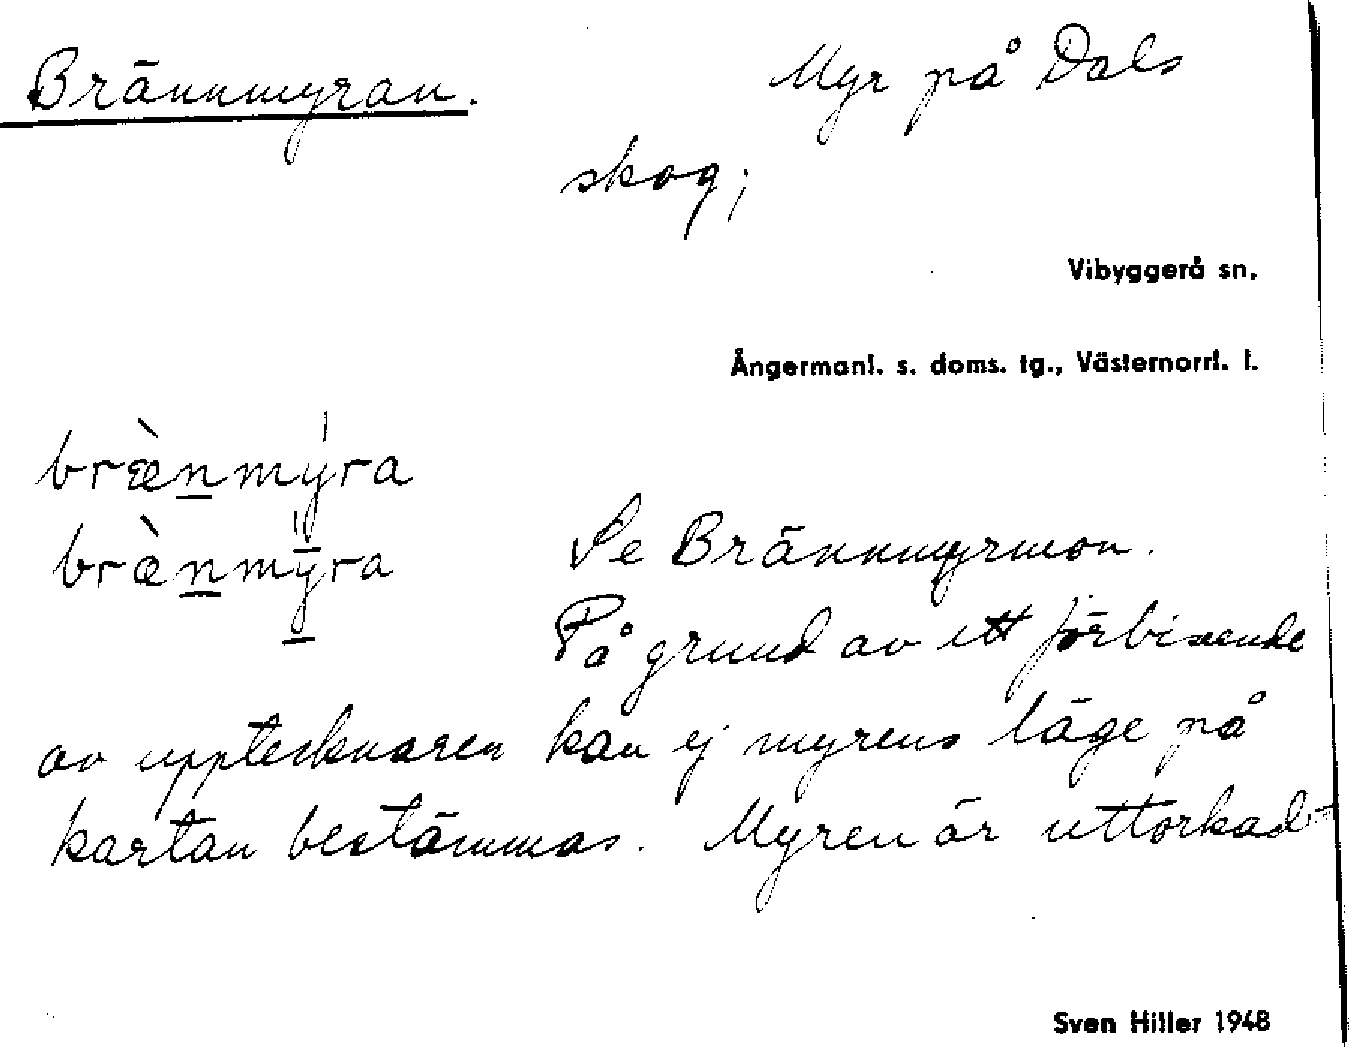 Brännmyran.
Myr på Dals
skog;
Vibyggerå sn.
Ångermanl. s. doms. tg., Västernorrl. l.
bræ̀n̲mýra
bræ̀n̲mȳ́ra
Se Brännmyrmon.
På grund av ett förbiseende
av upptecknaren kan ej myrens läge på
kartan bestämmas. Myren är uttorkad
Sven Hiller 1948